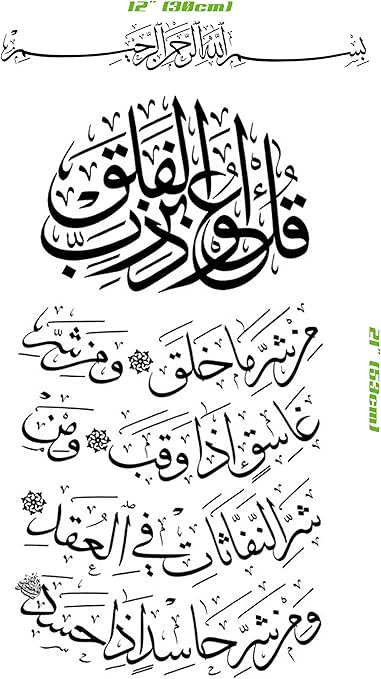 12" (30cm)
بِسْمِ اللَّهِ الرَّحْمَٰنِ الرَّحِيمِ
قُلْ أَعُوذُ بِرَبِّ الْفَلَقِ
مِنْ شَرِّ مَا خَلَقَ ۞ وَمِنْ شَرِّ
غَاسِقٍ إِذَا وَقَبَ ۞ وَمِنْ
شَرِّ النَّفَّاثَاتِ فِي الْعُقَدِ ۞
وَمِنْ شَرِّ حَاسِدٍ إِذَا حَسَدَ
21" (53cm)